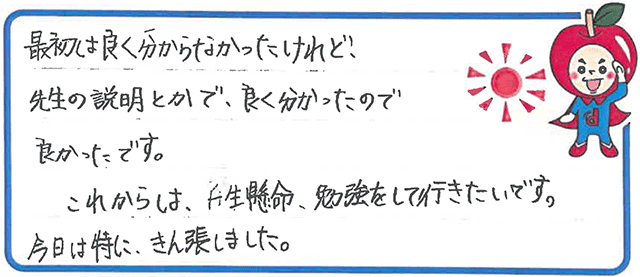 最初は良く分からなかったけれど、
先生の説明とかで、良く分かったので
良かったです。
これからは、一生懸命、勉強をして行きたいです。
今日は特に、きん張しました。